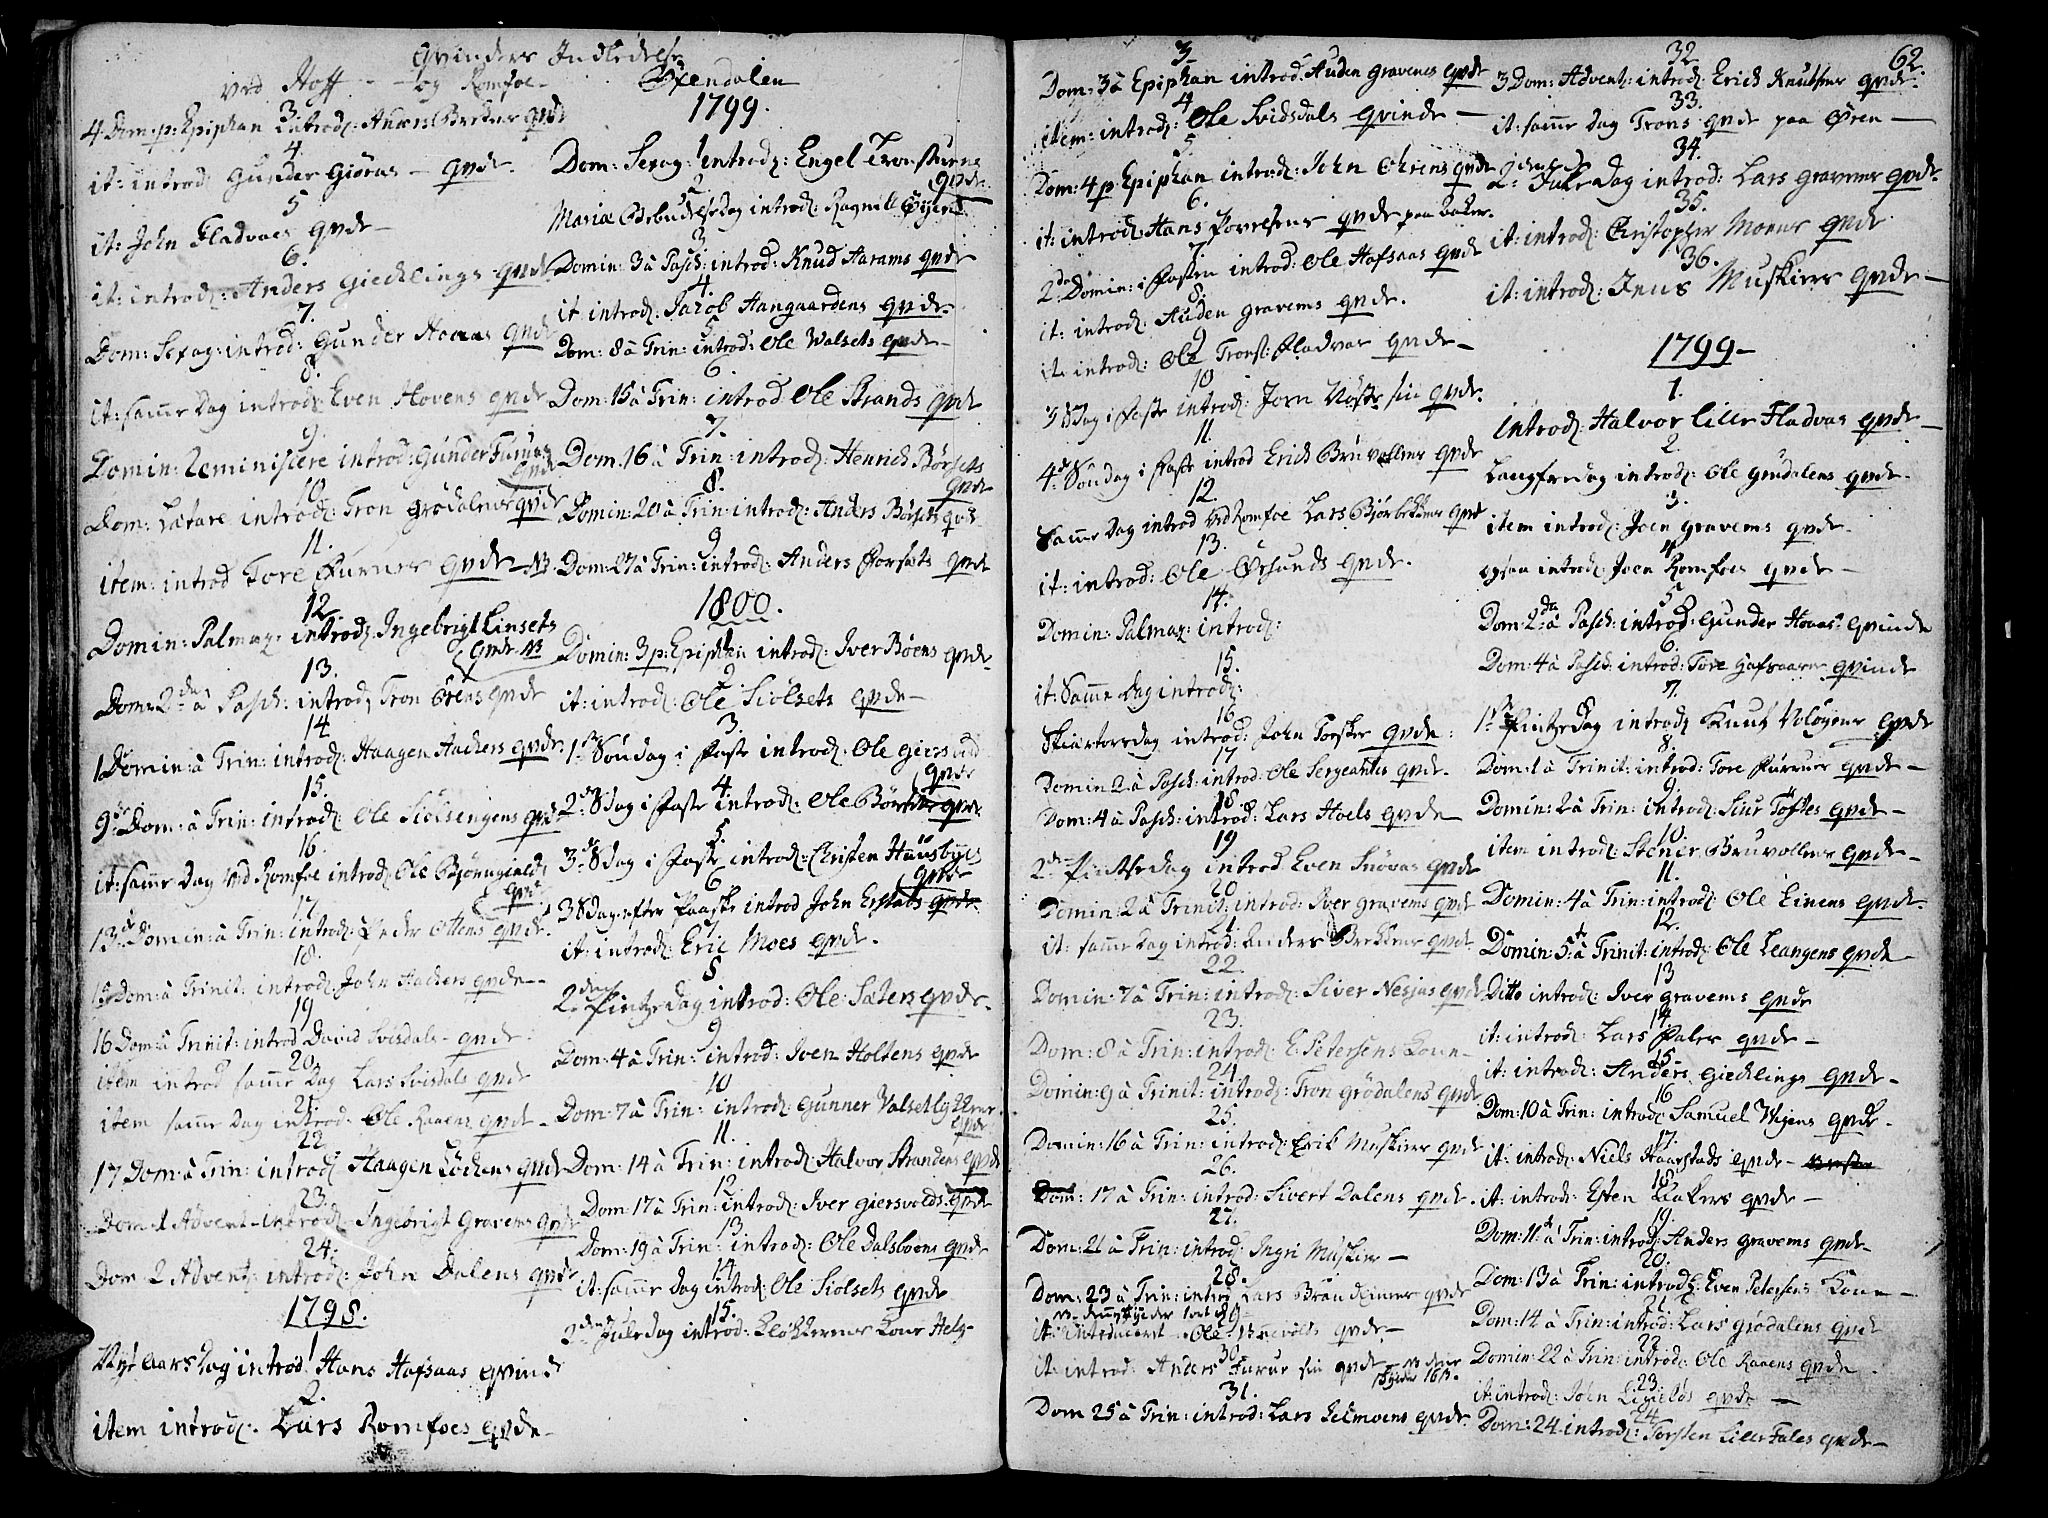 Qvinders Indledelse
ved Hoff - og Romfoe -
3
4 Dom: p: Epiphan introd: Anders Brekkes qvde
4
it: introd: Gunder Giøras - qvde.
5
it: John Fladvaes qvde -
6.
it: introd: Anders Giecklings qvnde
7.
Dom: Sexag: introd: Gunder Hovens qvde
8.
it: samme Dag introd: Even Hovens qvde
9.
Domin: Reminiscere introd: Gunder Furues
qvde
10
Dom: Lætare introd: Tron Grødalens qvde
11.
item: introd Tore Furues qvde - NB.
12
Domin: Palmar: introd: Ingebrigt Linsets
qvde NB
13.
Dom: 2da à Pasch: introd: Tron Ørens qvde
14
1. Domin: à Trin: introd: Haagen Aachers qvde.
15.
9de Dom: à Trin: introd: Ole Siølsengens qvde
16
it: samme Dag ved Romfoe introd: Ole
qvde
17
13de Domin: à Trin: introd: Peder Ottens qvde.
18.
15 Dom: à Trinit: introd: John Aachers qvde -
19
16 Dom: à Trinit: introd David Svisdals - qvde
20
item introd samme Dag Lars Svisdals qvde
21
item samme Dag introd: Ole Raaens qvde -
22
17 Dom: à Trin: introd: Haagen Løckens qvde
23.
Dom 1 Advent - introd: Ingebrigt Gravems qvde
24.
Dom 2 Advent: introd: John Dalens qvde
1798.
1
Nyt aars Dag introd: Hans Hafsaas qvinde
2.
item introd: Lars Romfoes qvde -
Øxendalen
1799.
1
Dom: Sexag: introd: Engel
qvde.
2
Mariæ Bebudelses dag introd: Ragnild Øyens
3
Domin: 3 à Pasch: introd: Knud Aarams qvde
4
it introd: Jacob Aangaardens qvnde.
5.
Dom: 8 à Trin: introd: Ole Walsets qvde -
6
Dom: 15 à Trin: introd Ole Strands qvde
7.
Dom: 16 à Trin: introd: Henrich Børsets
qvde
8.
Domin: 20 à Trin: introd: Anders Børsets qvde
9
Dom: 27 à Trin: introd: Anders Forsets qvde
1800.
1
Domin: 3 p: Epiphan introd: Iver Bøens qvde.
2
it: introd: Ole Siolsets qvde -
3.
1ste Søndag i Faste introd: Ole Giersvold
qvde
4
2den Sdag i Faste introd: Ole Børsets qvde.
5.
3de Sdag i Faste introd: Christen Huusbyes
qvde
6
3 Sdag efter Paaske introd John Erstads qvde.
7
it: introd: Eric Moes qvde.
8
2den Pintze dag introd: Ole Sæters qvde.
9
Dom: 4 à Trin: introd: Iven Holtens qvde
10
Dom: 7 à Trin: introd: Gunner
qvde
11.
Dom: 14 à Trin: introd: Halvor Strandens qvde
12
Dom: 17 à Trin: introd: Iver Giersvolds qvde
13
Dom: 19 à Trin: introd: Ole Dalsboens qvde
14
it: samme Dag introd: Ole Siolsets qvde
15.
2den Juledag introd: Klokkernes Kone Helg-
3
Dom: 3 à Epiphan introd: Auden Gravems qvde
4
item: introd: Ole Svidsdals qvinde -
5
Dom: 4 p Epiphan introd: John Ohrens qvde
6.
it: introd: Hans Povelsens qvde paa
7
2de Domin: i Fasten introd: Ole Hafsaas qvde
8.
it: introd: Auden Gravems qvde.
9
it: introd: Ole Fladvas qvde -
10
3 Sdag i Faste introd: Jorn qvde.
11.
4de Søndag i Faste introd Erich Bruvollens qvde
12.
Samme Dag introd ved Romfoe Lars Biørbekkens qvde
13.
it: introd: Ole Ørsunds qvde.
14.
Domin: Palmar: introd:
15.
it: Samme dag introd:
16
Skiærtorsdag introd: John Torskes qvde.
17
Domin 2 à Pasch: introd: Ole Sergeantes qvde.
18
Dom: 4 à Pasch: introd: Lars Hoels qvde
19
2den Pintzedag introd Even Snøvas qvde
20
Domin: 2 à Trinit: introd: Iver Gravems qvde
21.
it: samme Dag introd: Anders Brekkens qvde
22.
Domin: 7 à Trin: introd: Siver Nesjas qvde
23.
Dom: 8 à Trin: introd: E: Petersens Kone -
24
Domin: 9 à Trinit: introd: Tron Grødalens qvde
25.
Domin: 16 à Trin: introd: Erik Muskiers qvde
26.
Dom: 17 à Trin: introd: Sivert Dalens qvde.
27.
Dom: 21 à Trin: introd: Ingri Muskiers -
28.
Dom: 23 à Trin: introd Lars qvde
29
it: introducert - Ole qvde -
30
it: introd: Anders Furues qvde -
31.
Dom 25 à Trin: introd: Lars Jelmoens qvde.
62.
32
3 Dom: Advent: introd: Erich Knutsens qvde.
33.
it: samme Dag Trons qvde paa Øren -
34.
2den Jule dag introd: Lars Gravems qvde.
35.
it: introd: Christopher Moens qvde
36.
it: introd: Jens Muskiers qvde -
1799 -
1.
Introd: Halvor Lille Fladvas qvde -
2.
Langfredag introd: Ole Grødalens qvde.
3.
item introd: Joen Gravems qvde.
4
ogsaa introd: Joen Romfoes qvde -
5
Dom: 2da à Pasch: introd: Gunder Hovens qvinde
6.
Dom: 4 à Pasch: introd: Tore Hafsaas qvinde
7.
1ste Pintzedag introd Knut qvde
8.
Dom: 1 à Trinit: introd: Tore Furrues qvde -
9
Domin: 2 à Trin: introd: Siur Tøftes qvde -
10.
item introd: Stener Bruvollens qvde -
11.
Domin: 4 à Trin: introd: Ole Linens qvde.
12.
Domin: 5 à Trinit: introd: Ole Leangens qvde
13
Ditto introd: Iver Gravems qvde
14
it: introd: Lars Fales qvde -
15
it: introd: Anders Giecklings qvde -
16
Dom: 10 à Trin: introd: Samuel qvde.
17.
it: introd: Niels Haarstads qvde -
18.
it: introd: Esten Bakers qvde -
19.
Dom: 11te à Trin: introd: Anders Gravems qvde -
20.
Dom: 13 à Trin: introd: Even Petersens Kone -
21.
Dom: 14 à Trin: introd: Lars Grødalens qvde
22
Domin: 22 à Trin: introd: Ole Raaens qvde.
23.
it: introd: John qvde -
24
Dom: 24 introd: Torsten Lille Fales qvde -